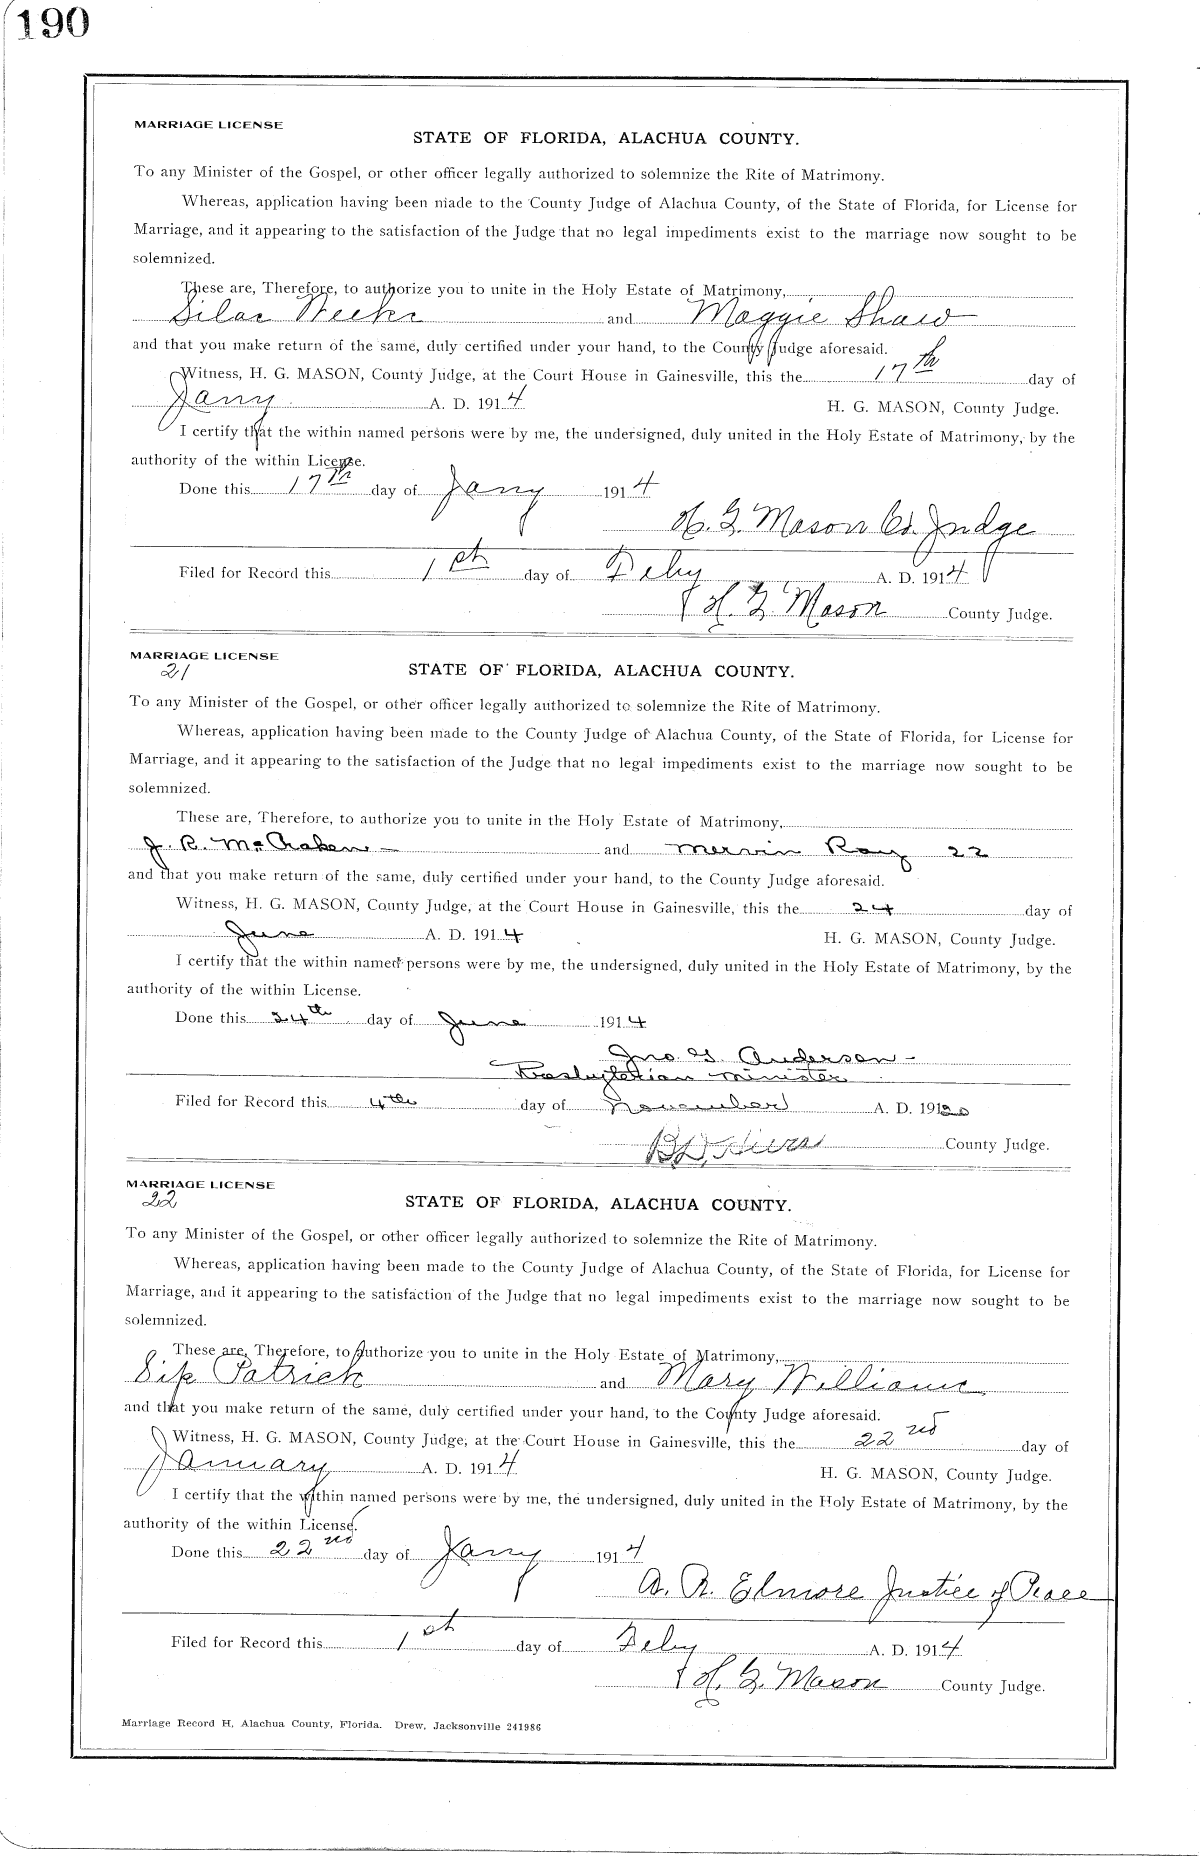 190
MARRIAGE LICENSE
STATE OF FLORIDA, ALACHUA COUNTY.
To any Minister of the Gospel, or other officer legally authorized to solemnize the Rite of Matrimony.
Whereas, application having been made to the County Judge of Alachua County, of the State of Florida, for License for
Marriage, and it appearing to the satisfaction of the Judge that no legal impediments exist to the marriage now sought to be
solemnized.
These are, Therefore, to authorize you to unite in the Holy Estate of Matrimony,
Silas Weeks and Maggie Shaw
and that you make return of the same, duly certified under your hand, to the County Judge aforesaid.
Witness, H. G. MASON, County Judge, at the Court House in Gainesville, this the 17th day of
Jany A. D. 1914 H. G. MASON, County Judge.
I certify that the within named persons were by me, the undersigned, duly united in the Holy Estate of Matrimony, by the
authority of the within License.
Done this 17th day of Jany 1914
H. G. Mason Co. Judge
Filed for Record this 1st day of Feby A. D. 1914
H. G. Mason County Judge.
MARRIAGE LICENSE
21
STATE OF FLORIDA, ALACHUA COUNTY.
To any Minister of the Gospel, or other officer legally authorized to solemnize the Rite of Matrimony.
Whereas, application having been made to the County Judge of Alachua County, of the State of Florida, for License for
Marriage, and it appearing to the satisfaction of the Judge that no legal impediments exist to the marriage now sought to be
solemnized.
These are, Therefore, to authorize you to unite in the Holy Estate of Matrimony,
J. R. McCraken and Mervin Ray 22
and that you make return of the same, duly certified under your hand, to the County Judge aforesaid.
Witness, H. G. MASON, County Judge, at the Court House in Gainesville, this the 24 day of
June A. D. 1914 H. G. MASON, County Judge.
I certify that the within named persons were by me, the undersigned, duly united in the Holy Estate of Matrimony, by the
authority of the within License.
Done this 24th day of June 1914
Jno G. Anderson
Presbyterian Minister
Filed for Record this 4th day of November A. D. 1920
County Judge.
MARRIAGE LICENSE
22
STATE OF FLORIDA, ALACHUA COUNTY.
To any Minister of the Gospel, or other officer legally authorized to solemnize the Rite of Matrimony.
Whereas, application having been made to the County Judge of Alachua County, of the State of Florida, for License for
Marriage, and it appearing to the satisfaction of the Judge that no legal impediments exist to the marriage now sought to be
solemnized.
These are, Therefore, to authorize you to unite in the Holy Estate of Matrimony,
Sip Patrick and Mary Williams
and that you make return of the same, duly certified under your hand, to the County Judge aforesaid.
Witness, H. G. MASON, County Judge, at the Court House in Gainesville, this the 22nd day of
January A. D. 1914 H. G. MASON, County Judge.
I certify that the within named persons were by me, the undersigned, duly united in the Holy Estate of Matrimony, by the
authority of the within License.
Done this 22nd day of Jany 1914
A. R. Elmore Justice of Peace
Filed for Record this 1st day of Feby A. D. 1914
H. G. Mason County Judge.
Marriage Record H, Alachua County, Florida. Drew, Jacksonville 241986